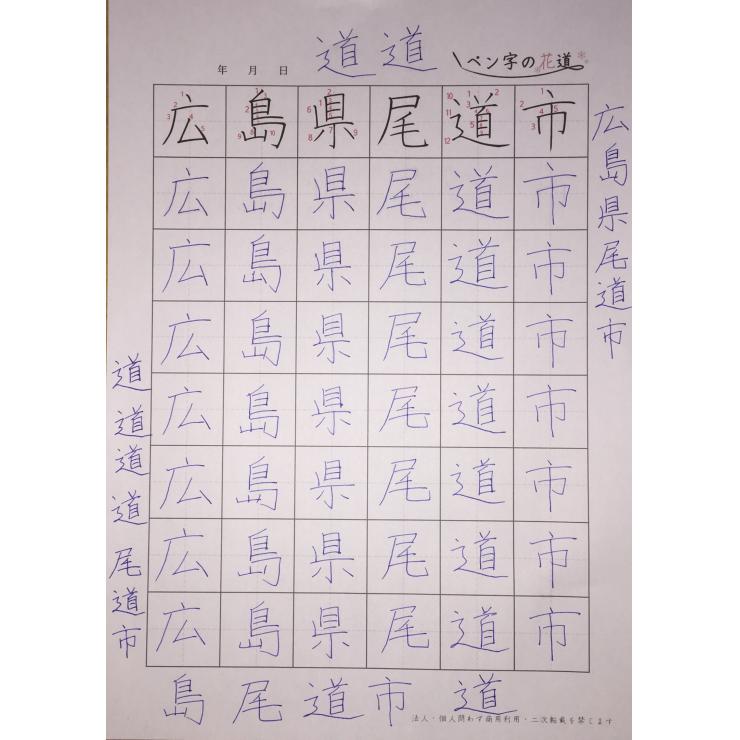 道道
年 月 日
ペン字の花道
広島県尾道市
広島県尾道市
広島県尾道市
広島県尾道市
広島県尾道市
広島県尾道市
広島県尾道市
広島県尾道市
広島県尾道市
道道道道尾道市
島尾道市 道
法人・個人問わず商用利用・二次転載を禁じます